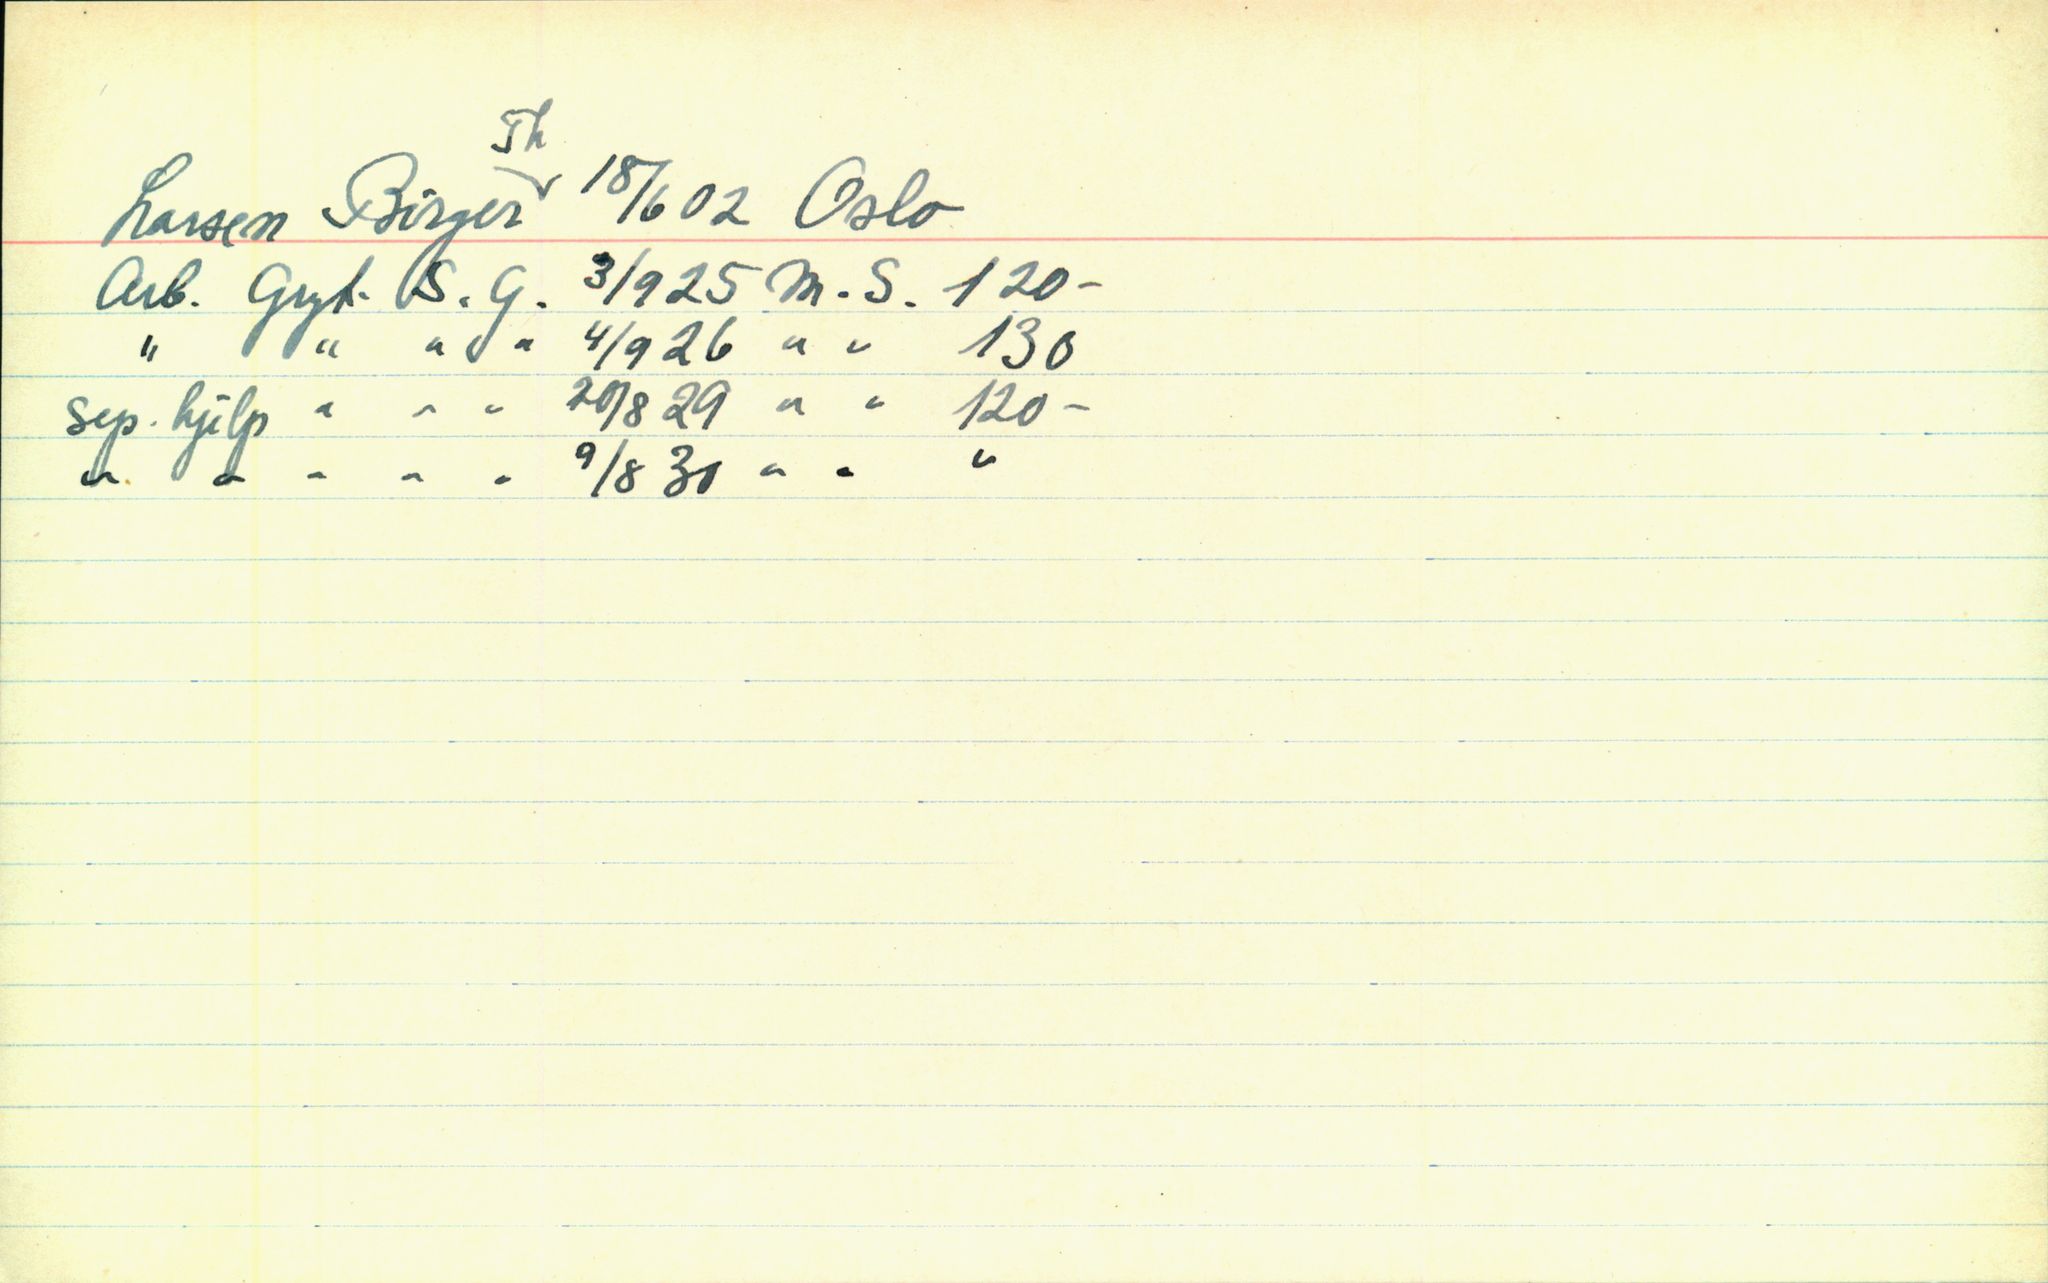 Larsen Birger Th 18/6 02 Oslo
Arb. Gryt. S. G. 3/9 25 M. S. 120-
" " " " 4/9 26 " " 130
sep. hjelp " " " 20/8 29 " " 120-
" " " " " 9/8 30 " " "